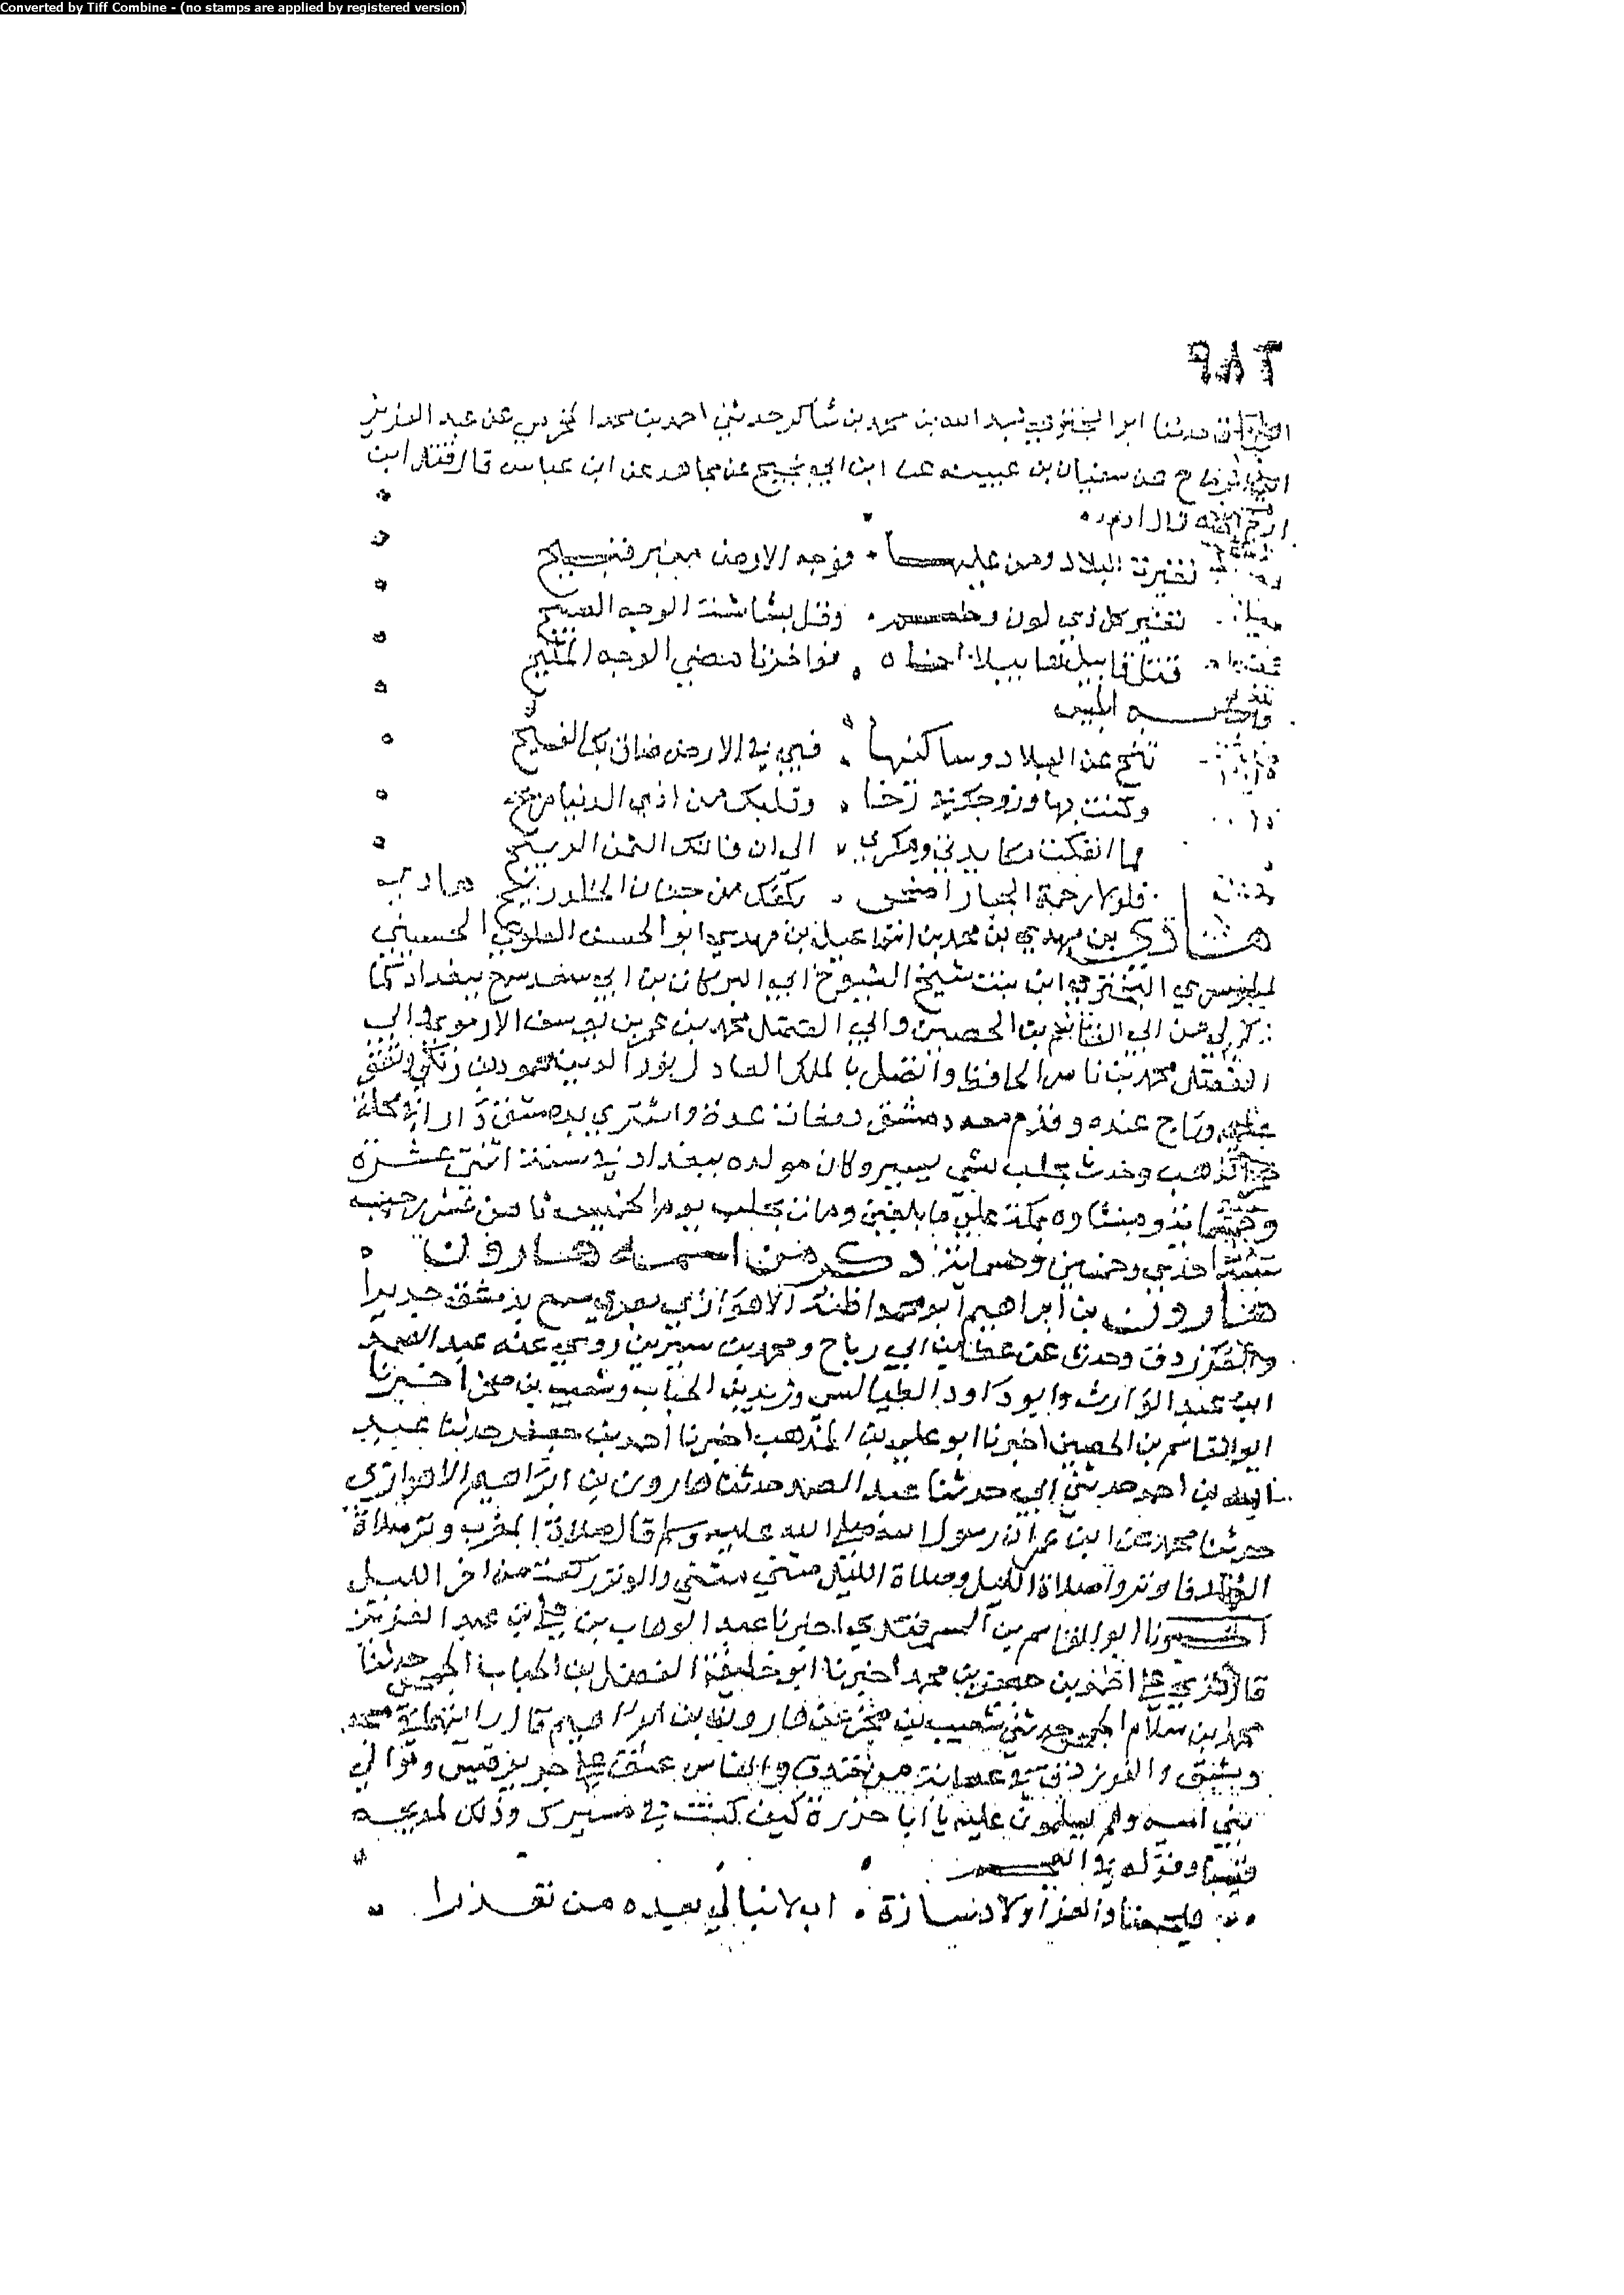 Converted by Tiff Combine - (no stamps are applied by registered version)
٩٨٢
حدثنا ابو البختري عبد الله بن محمد بن شاكر حدثني احمد بن محمد المخرمي عن عبد العزيز
عن سفيان بن عيينه عن ابن ابي نجيح عن مجاهد عن ابن عباس قال لما قتل ابن
ادم اخاه قال ادم
تغيرت البلاد ومن عليها فوجه الارض مغبر قبيح
تغير كل ذي لون وطعم وقل بشاشة الوجه الصبيح
قتل قابيل هابيلا اخاه فواحزنا مضى الوجه المليح
ابليس
تنح عن البلاد وساكنيها فبي في الارض ضاق بك الفسيح
وكنت بها وزوجك في رخا وقلبك من اذى الدنيا مريح
فما انفكت مكايدتي ومكري الى ان فاتك الثمن الربيح
فلولا رحمة الجبار اضحى بكفك من جنان الخلد ريح هادي
بن مهدي بن محمد بن اسماعيل بن مهدي ابو الحسن العلوي الحسيني
ابن بنت شيخ الشيوخ ابي البركات بن ابي سعد سمع ببغداد كما
ذكر لي من ابي القاسم بن الحصين وابي الفضل محمد بن عمر بن يوسف الارموي وابي
الفضل محمد بن ناصر الحافظ واتصل بالملك العادل نور الدين محمود بن زنكي ونفق
عليه وراج عنده وقدم معه دمشق دفعات عدة واشترى بدمشق دارا في محلة
حجر الذهب وحدث بحلب بشي يسير وكان مولده ببغداد في سنة اثنتي عشرة
وخمسمائة ومنشاوه بمكة على ما بلغني ومات بحلب يوم الخميس ثامن عشر رجب
سنة احدى وخمسين وخمسمائة ذكر من اسمه هارون
هارون بن ابراهيم ابو محمد اظنه الاهوازي بصري سمع بدمشق جريرا
والفرزدق وحدث عن عطا بن ابي رباح ومحمد بن سيرين روى عنه عبد الصمد
ابن عبد الوارث وابو داود الطيالسي وزيد بن الحباب وشعيب بن صخر اخبرنا
ابو القاسم بن الحصين اخبرنا ابو علي بن المذهب اخبرنا احمد بن جعفر حدثنا عبد
الله بن احمد حدثني ابي حدثنا عبد الصمد حدثنا هارون بن ابراهيم الاهوازي
حدثنا محمد عن ابن عمر ان رسول الله صلى الله عليه وسلم قال صلاة المغرب وتر صلاة
النهار فاوتروا صلاة الليل وصلاة الليل مثنى مثنى والوتر ركعة من اخر الليل
اخبرنا ابو القاسم بن السمرقندي اخبرنا عبد الوهاب بن علي بن عبد العزيز
قال قرى على احمد بن جعفر بن محمد اخبرنا ابو خليفة الفضل بن الحباب الجمحي حدثنا
محمد بن سلام الجمحي حدثني شعيب بن صخر عن هارون بن ابراهيم قال رايتهما في مسجد
دمشق والفرزدق في عصابة من خندف والناس عنق على جرير قيس وموالي
بني اميه ولم يسلمون عليه يا ابا حزرة كيف كنت في مسيرك وذلك لمديحه
قيسا وقوله في العجم
فيجمعنا والغر اولاد سارة اب لا نبالي بعده من تعذرا